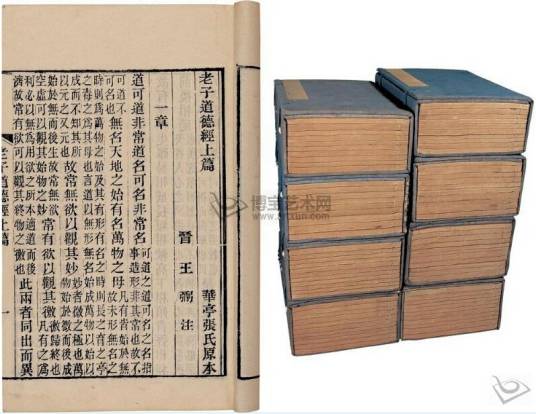 老子道德經上篇
晉 王弼 注 華亭張氏原本
一章
道可道非常道名可名非常名
可道之道可名之名指
事造形非其常也故不
可道不
可名也
無名天地之始有名萬物之母
凡有皆始於無
故未形無名之
時則為萬物之始及其有形有名之時則長之育之亭
之毒之為其母也言道以無形無名始成萬物以始以
成而不知其所
以元之又元也
故常無欲以觀其妙
妙者微之極也萬
物始於微而後成
始於無而後生故常無欲
空虛可以觀其始物之妙
常有欲以觀其徼
徼歸終也
凡有之為
利必以無為用欲之所本適道而後
濟故常有欲可以觀其終物之徼也
此兩者同出而異
老子道德經上篇
一
博宝艺术网
artxun.com